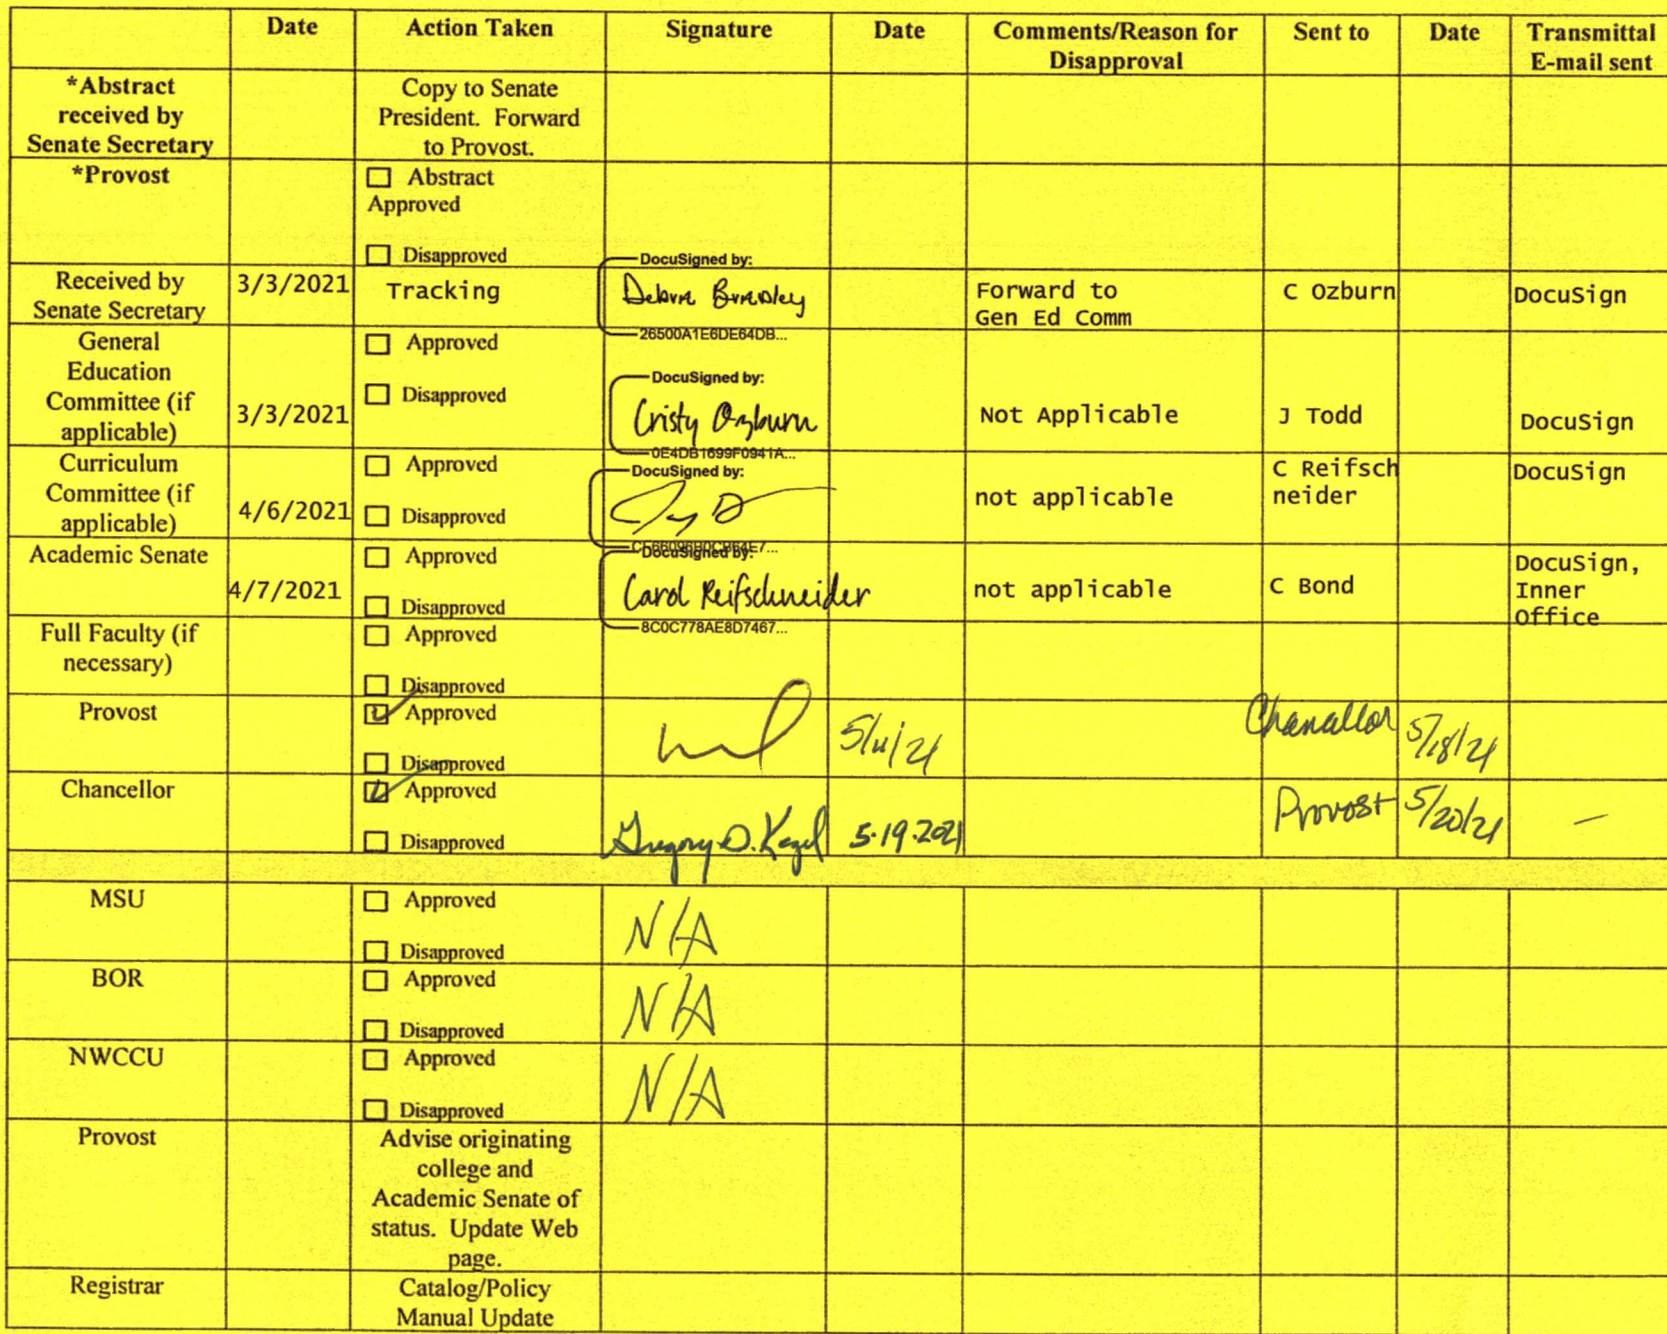 Date Action Taken Signature Date Comments/Reason for Disapproval Sent to Date Transmittal E-mail sent
*Abstract received by Senate Secretary
Copy to Senate President. Forward to Provost.
*Provost
☐ Abstract Approved
☐ Disapproved
Received by Senate Secretary
3/3/2021
Tracking
DocuSigned by:
Debra Bradley
26500A1E6DE64DB...
Forward to
Gen Ed Comm
C Ozburn
DocuSign
General Education Committee (if applicable)
3/3/2021
☐ Approved
☐ Disapproved
DocuSigned by:
Cristy Ozburn
0E4DB1699F0941A...
Not Applicable
J Todd
DocuSign
Curriculum Committee (if applicable)
4/6/2021
☐ Approved
☐ Disapproved
DocuSigned by:
not applicable
C Reifsch
neider
DocuSign
Academic Senate
4/7/2021
☐ Approved
☐ Disapproved
DocuSigned by:
Carol Reifschneider
8C0C778AE8D7467...
not applicable
C Bond
DocuSign,
Inner
Office
Full Faculty (if necessary)
☐ Approved
☐ Disapproved
Provost
☑ Approved
☐ Disapproved
Chancellor
5/18/21
Chancellor
☑ Approved
☐ Disapproved
Gregory D. Kegel
5.19.2021
Provost
5/20/21
—
MSU
☐ Approved
☐ Disapproved
N/A
BOR
☐ Approved
☐ Disapproved
N/A
NWCCU
☐ Approved
☐ Disapproved
N/A
Provost
Advise originating college and Academic Senate of status. Update Web page.
Registrar
Catalog/Policy Manual Update